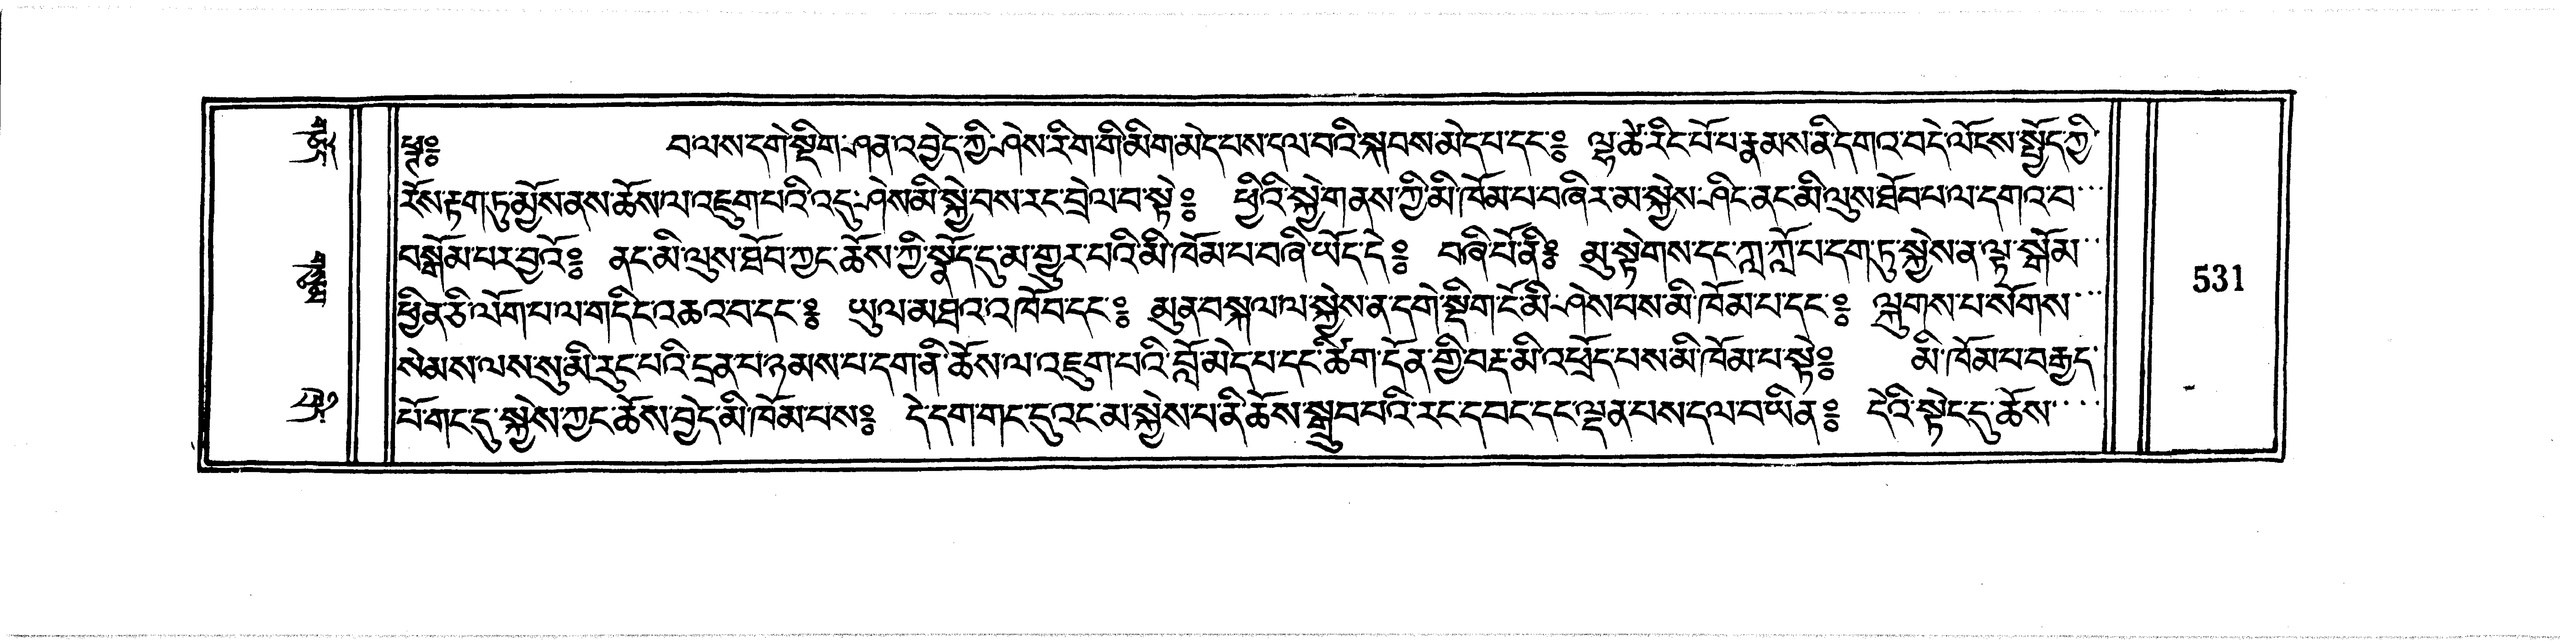 བ་ལས་དགེ་སྡིག་ཤན་འབྱེད་ཀྱི་ཤེས་རིག་གི་མིག་མེད་པས་དལ་བའི་སྐབས་མེད་པ་དང༔ ལྷ་ཚེ་རིང་པོ་པ་རྣམས་ནི་དགའ་བདེ་ལོངས་སྤྱོད་ཀྱི་
རོས་རྟག་ཏུ་མྱོས་ནས་ཆོས་ལ་འཇུག་པའི་འདུ་ཤེས་མི་སྐྱེ་བས་རང་བྲེལ་བ་སྟེ༔ ཕྱིའི་སྐྱེ་གནས་ཀྱི་མི་ཁོམ་པ་བཞིར་མ་སྐྱེས་ཤིང་ནང་མི་ལུས་ཐོབ་པ་ལ་དགའ་བ་
བསྒོམ་པར་བྱའོ༔ ནང་མི་ལུས་ཐོབ་ཀྱང་ཆོས་ཀྱི་སྣོད་དུ་མ་གྱུར་པའི་མི་ཁོམ་པ་བཞི་ཡོད་དེ༔ བཞི་པོ་ནི༔ མུ་སྟེགས་དང་ཀླ་ཀློ་པ་དག་ཏུ་སྐྱེས་ན་ལྟ་སྒོམ་
ཕྱིན་ཅི་ལོག་པ་ལ་གདིང་འཆའ་བ་དང༔ ཡུལ་མཐའ་འཁོབ་དང༔ མུན་བསྐལ་ལ་སྐྱེས་ན་དགེ་སྡིག་ངོ་མི་ཤེས་པས་མི་ཁོམ་པ་དང༔ ལྐུགས་པ་སོགས་
སེམས་ལས་སུ་མི་རུང་པའི་དྲན་པ་ཉམས་པ་དག་ནི་ཆོས་ལ་འཇུག་པའི་བློ་མེད་པ་དང་ཚིག་དོན་གྱི་བརྡ་མི་འཕྲོད་པས་མི་ཁོམ་པ་སྟེ༔ མི་ཁོམ་པ་བརྒྱད་
པོ་གང་དུ་སྐྱེས་ཀྱང་ཆོས་བྱེད་མི་ཁོམ་པས༔ དེ་དག་གང་དུའང་མ་སྐྱེས་པ་ནི་ཆོས་སྒྲུབ་པའི་རང་དབང་དང་ལྡན་པས་དལ་བ་ཡིན༔ དེའི་སྟེང་དུ་ཆོས་
531